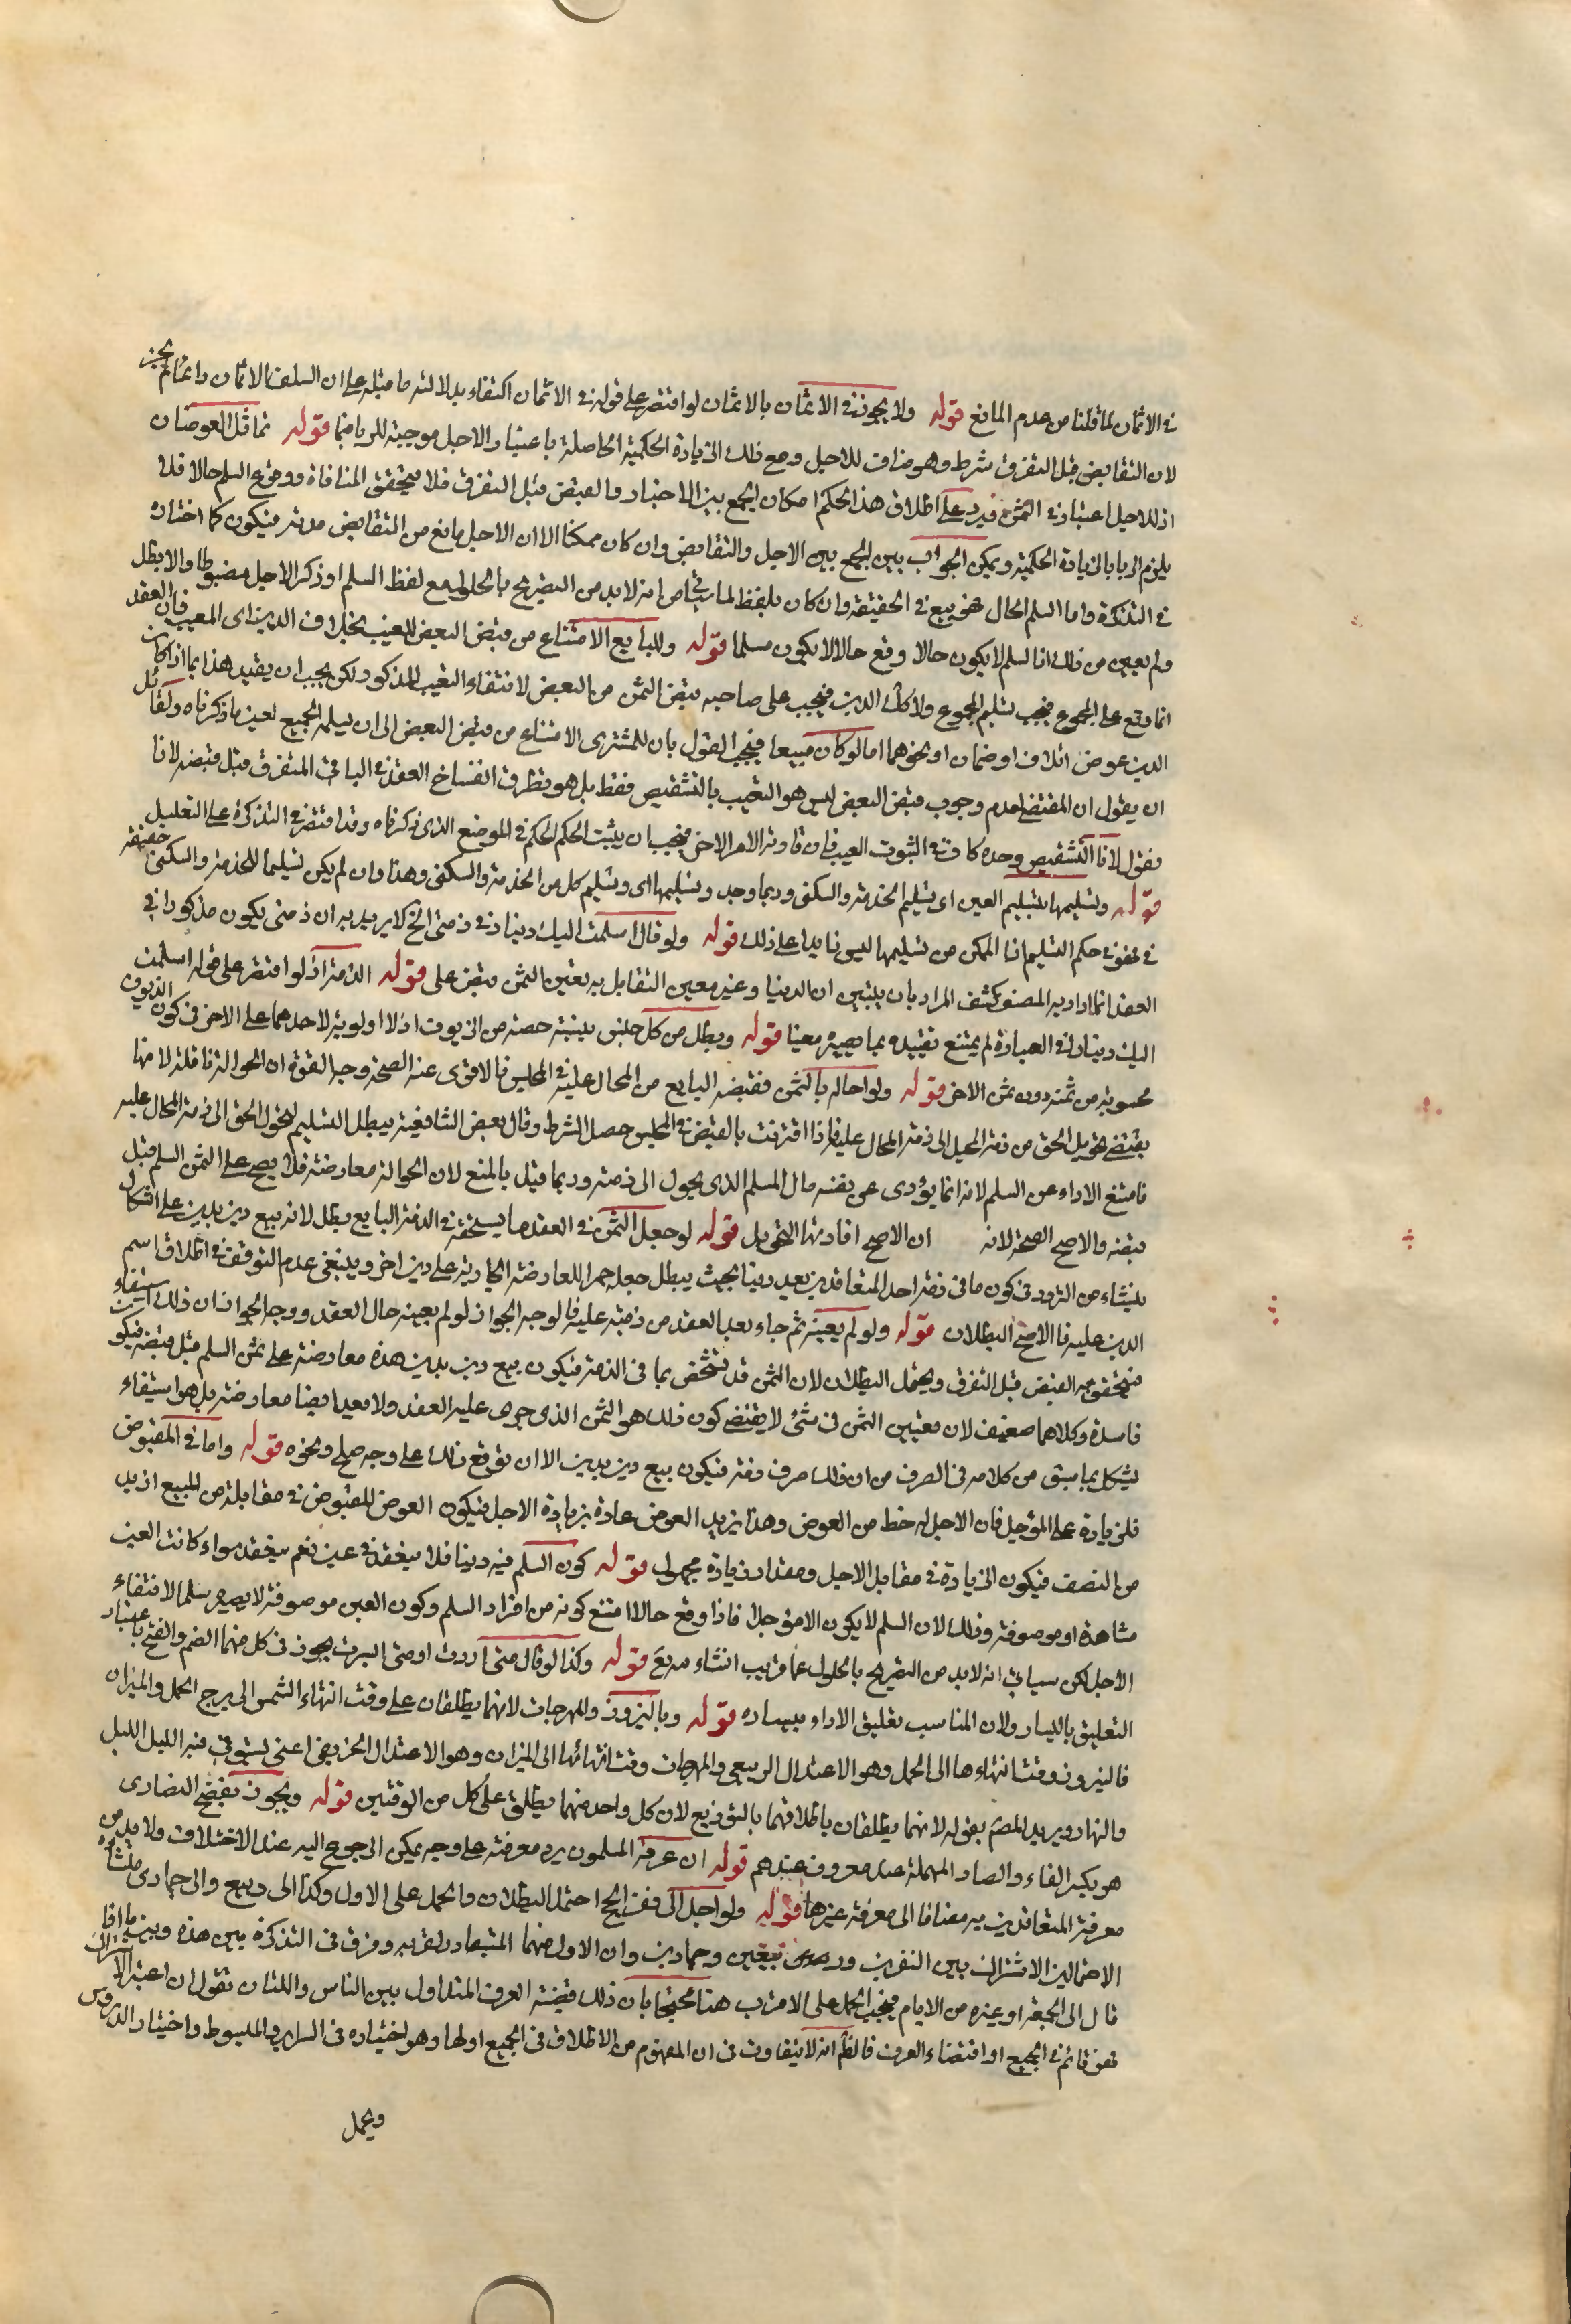 في الاثمان لما قلنا من عدم المانع قوله ولا يجوز في الاثمان بالاثمان لو اقتصر على قوله في الاثمان اكتفاء بدلالة ما قبله على ان السلف بالاثمان وانما لم يجز
لان التقابض قبل التفرق شرط وهو مناف للاجل ومع ذلك الزيادة الحكمية الحاصلة باعتبار الاجل موجبة للربا فيما قوله تماثل العوضان
اذ للاجل اعتبار في الثمن فيرد على اطلاق هذا الحكم امكان الجمع بين الاخبار والقبض قبل التفرق فلا يتحقق المنافاة ووقوع السلم حالا فلا
يلزم الربا بالزيادة الحكمية ويمكن الجواب بين الجمع بين الاجل والتقابض وان كان ممكنا الا ان الاجل مانع من التقابض مدته فيكون كما اختاره
في التذكرة واما السلم الحال فهو بيع في الحقيقة وان كان بلفظ لما سياتي من انه لا بد من التصريح بالحلول مع لفظ السلم او ذكر الاجل مضبوطا والا بطل
ولم يعين من ذلك انا لسلم لا يكون حالا وقع حالا لا يكون مسلما قوله وللبايع الامتناع من قبض البعض للعيب بخلاف الدين اى المعيب فان العقد
انما وقع على المجموع فيجب تسليم المجموع ولا كك الدين فيجب على صاحبه قبض الثمن من البعض لانتفاء التعيب المذكور ولكن يجب ان يقيد هذا بما اذا كان
الدين عوض اتلاف او ضمان او نحوهما اما لو كان مبيعا فيجب القول بان للمشترى الامتناع من قبض البعض الى ان يسلمه الجميع لعين ما ذكرناه ولقائل
ان يقول ان المقتضى لعدم وجوب قبض البعض ليس هو التعيب بالتشقيص فقط بل هو تطرق انفساخ العقد في الباقي المتفرق قبل قبضه لانا
نقول لانا التشقيص وحده كاف في الثبوت العيب فان قاوته الامر الاخر فيجب ان يثبت الحكم الحكم في الموضع الذى ذكرناه وقد اقتصر في التذكرة على التعليل
قوله وتسليمها بتسليم العين اى تسليم الخدمة والسكنى وربما وجد وتسليمها اى وتسليم كل من الخدمة والسكنى وهذا وان لم يكن تسليما للخدمة والسكنى حقيقة
في فهو في حكم التسليم انا الممكن من تسليمها ليس زايدا على ذلك قوله ولو قال اسلمت اليك دينارا في ذمتى الخ لا يريد به ان ذمتى يكون مذكورا في
العقد انما اراد به المصنف كشف المراد بان يتبين ان الدينار غير معين التقابل به تعين الثمن قبض على قوله الذمة اذ لو اقتصر على قوله اسلمت
اليك دينارا في العبارة لم يمتنع تقييده بما يصيره معينا قوله وبطل من كل جنس بنسبة حصته من الزيوف اذ لا اولوية لاحدهما على الاخر في كون الزيوف
محسوبة من ثمنه دون ثمن الاخر قوله ولو احاله بالثمن فقبضه البايع من المحال عليه في المجلس فالاقوى عنه الصحة وجه القوة ان الحوالة ناقلة لا منها
يقتضى تحويل الحق من ذمة المحيل الى ذمة المحال عليه فاذا اقترنت بالقبض في المجلس حصل الشرط وقال بعض الشافعية يبطل التسليم لتحول الحق الى ذمة المحال عليه
فامتنع الاداء عن السلم لانه انما يؤدى عن نفسه مال المسلم الذى يحول الى ذمته وربما قيل بالمنع لان الحوالة معاوضة فلا يصح على الثمن السلم قبل
قبضه والاصح الصحة لانه ان الاصح افادتها التحويل قوله لو جعل الثمن في العقد ما يستحقه في الذمة البايع بطل لانه بيع دين بدين على اشكال
ينشاء من التردد في كون ما في ذمة احد المتعاقدين بعيد دينا بحيث يبطل جعله جمرا للمعاوضة الجارية على دين اخر وينبغى عدم التوقف في اطلاق اسم
الدين عليه فالاصح البطلان قوله ولو لم يعينه ثم جاء بعد العقد من ذمته عليه فالوجه الجواز لو لم يعينه حال العقد ووجه الجواز ان ذلك استيفاء
فيتحقق به القبض قبل التفرق ويحتمل البطلان لان الثمن قد تشخص بما في الذمة فيكون بيع دين بدين هذه معاوضة على ثمن السلم قبل قبضه فيكون
فاسدة وكلاهما ضعيف لان تعيين الثمن في مثئ لا يقتضى كون ذلك هو الثمن الذى جرى عليه العقد ولا معيد ايضا معاوضة بل هو استيفاء
يشكل بما سبق من كلامه في الصرف من ان ذلك صرف ذمة فيكون بيع دين بدين الا ان يوقع ذلك على وجه صلح ونحوه قوله واما في المقبوض
فلزيادة على المؤجل فان الاجل له خط من العوض وهذا يزيد العوض عادة بزيادة الاجل فيكون العوض المقبوض في مقابلة من المبيع ازيد
من النصف فيكون الزيادة في مقابل الاجل ومقدار زيادة مجهول قوله كون السلم فيه دينا فلا ينعقد في عين نعم ينعقد سواء كانت العين
مشاهدة او موصوفة وذلك لان السلم لا يكون الا مؤجلا فاذا وقع حالا امتنع كونه من افراد السلم وكون العين موصوفة لا يصير سلما لانتفاء
الاجل لكن سياتي انه لا بد من التصريح بالحلول عما قريب انشاء مدتع قوله وكذا لو قال متى اردت او متى ايسرت يجوز في كل منهما الضم والفتح باعتبار
التعليق باليسار ولان المناسب تعليق الاداء بيساره قوله وبالنيروز والمهرجان لانهما يطلقان على وقت انتهاء الشمس الى برج الحمل والميزان
فالنيروز وقت انتهاءها الى الحمل وهو الاعتدال الربيعى والمهرجان وقت انتهائها الى الميزان وهو الاعتدال الخريفى اعنى يستوى فيه الليل الليل
والنهار ويريد المص بقوله لانهما يطلقان باطلاقهما بالتوزيع لان كل واحد منهما يطلق على كل من الوقتين قوله ويجوز بفصح النصارى
هو بكسر الفاء والصاد المهملة عيد معروف عندهم قوله ان عرفه المسلمون يريد معرفته على وجه يمكن الرجوع اليه عند الاختلاف ولا بد من
معرفة المتعاقدين به مضافا الى معرفة غيرها قوله ولو اجل الى نفر الحج احتمل البطلان والحمل على الاول وكذا الى ربيع والى جمادى منشاء
الاحتمالين الاشتراك بين النفرين وربيعين وجمادين وان الاول منهما المتبادر لقربه وفرق في التذكرة بين هذه وبين ما اذا
قال الى الجمعة او غيره من الايام فيجب الحمل على الاقرب هنا محتجا بان ذلك قضية العرف المتداول بين الناس واللذان نقول ان اعتبر الاشتراك
فهو قائم في الجميع او اقتضاء العرف فالظ انه لا يتفاوت في ان المفهوم من الاطلاق في الجميع اولها وهو اختياره في السراير والمبسوط واختيار الدروس
ويحمل